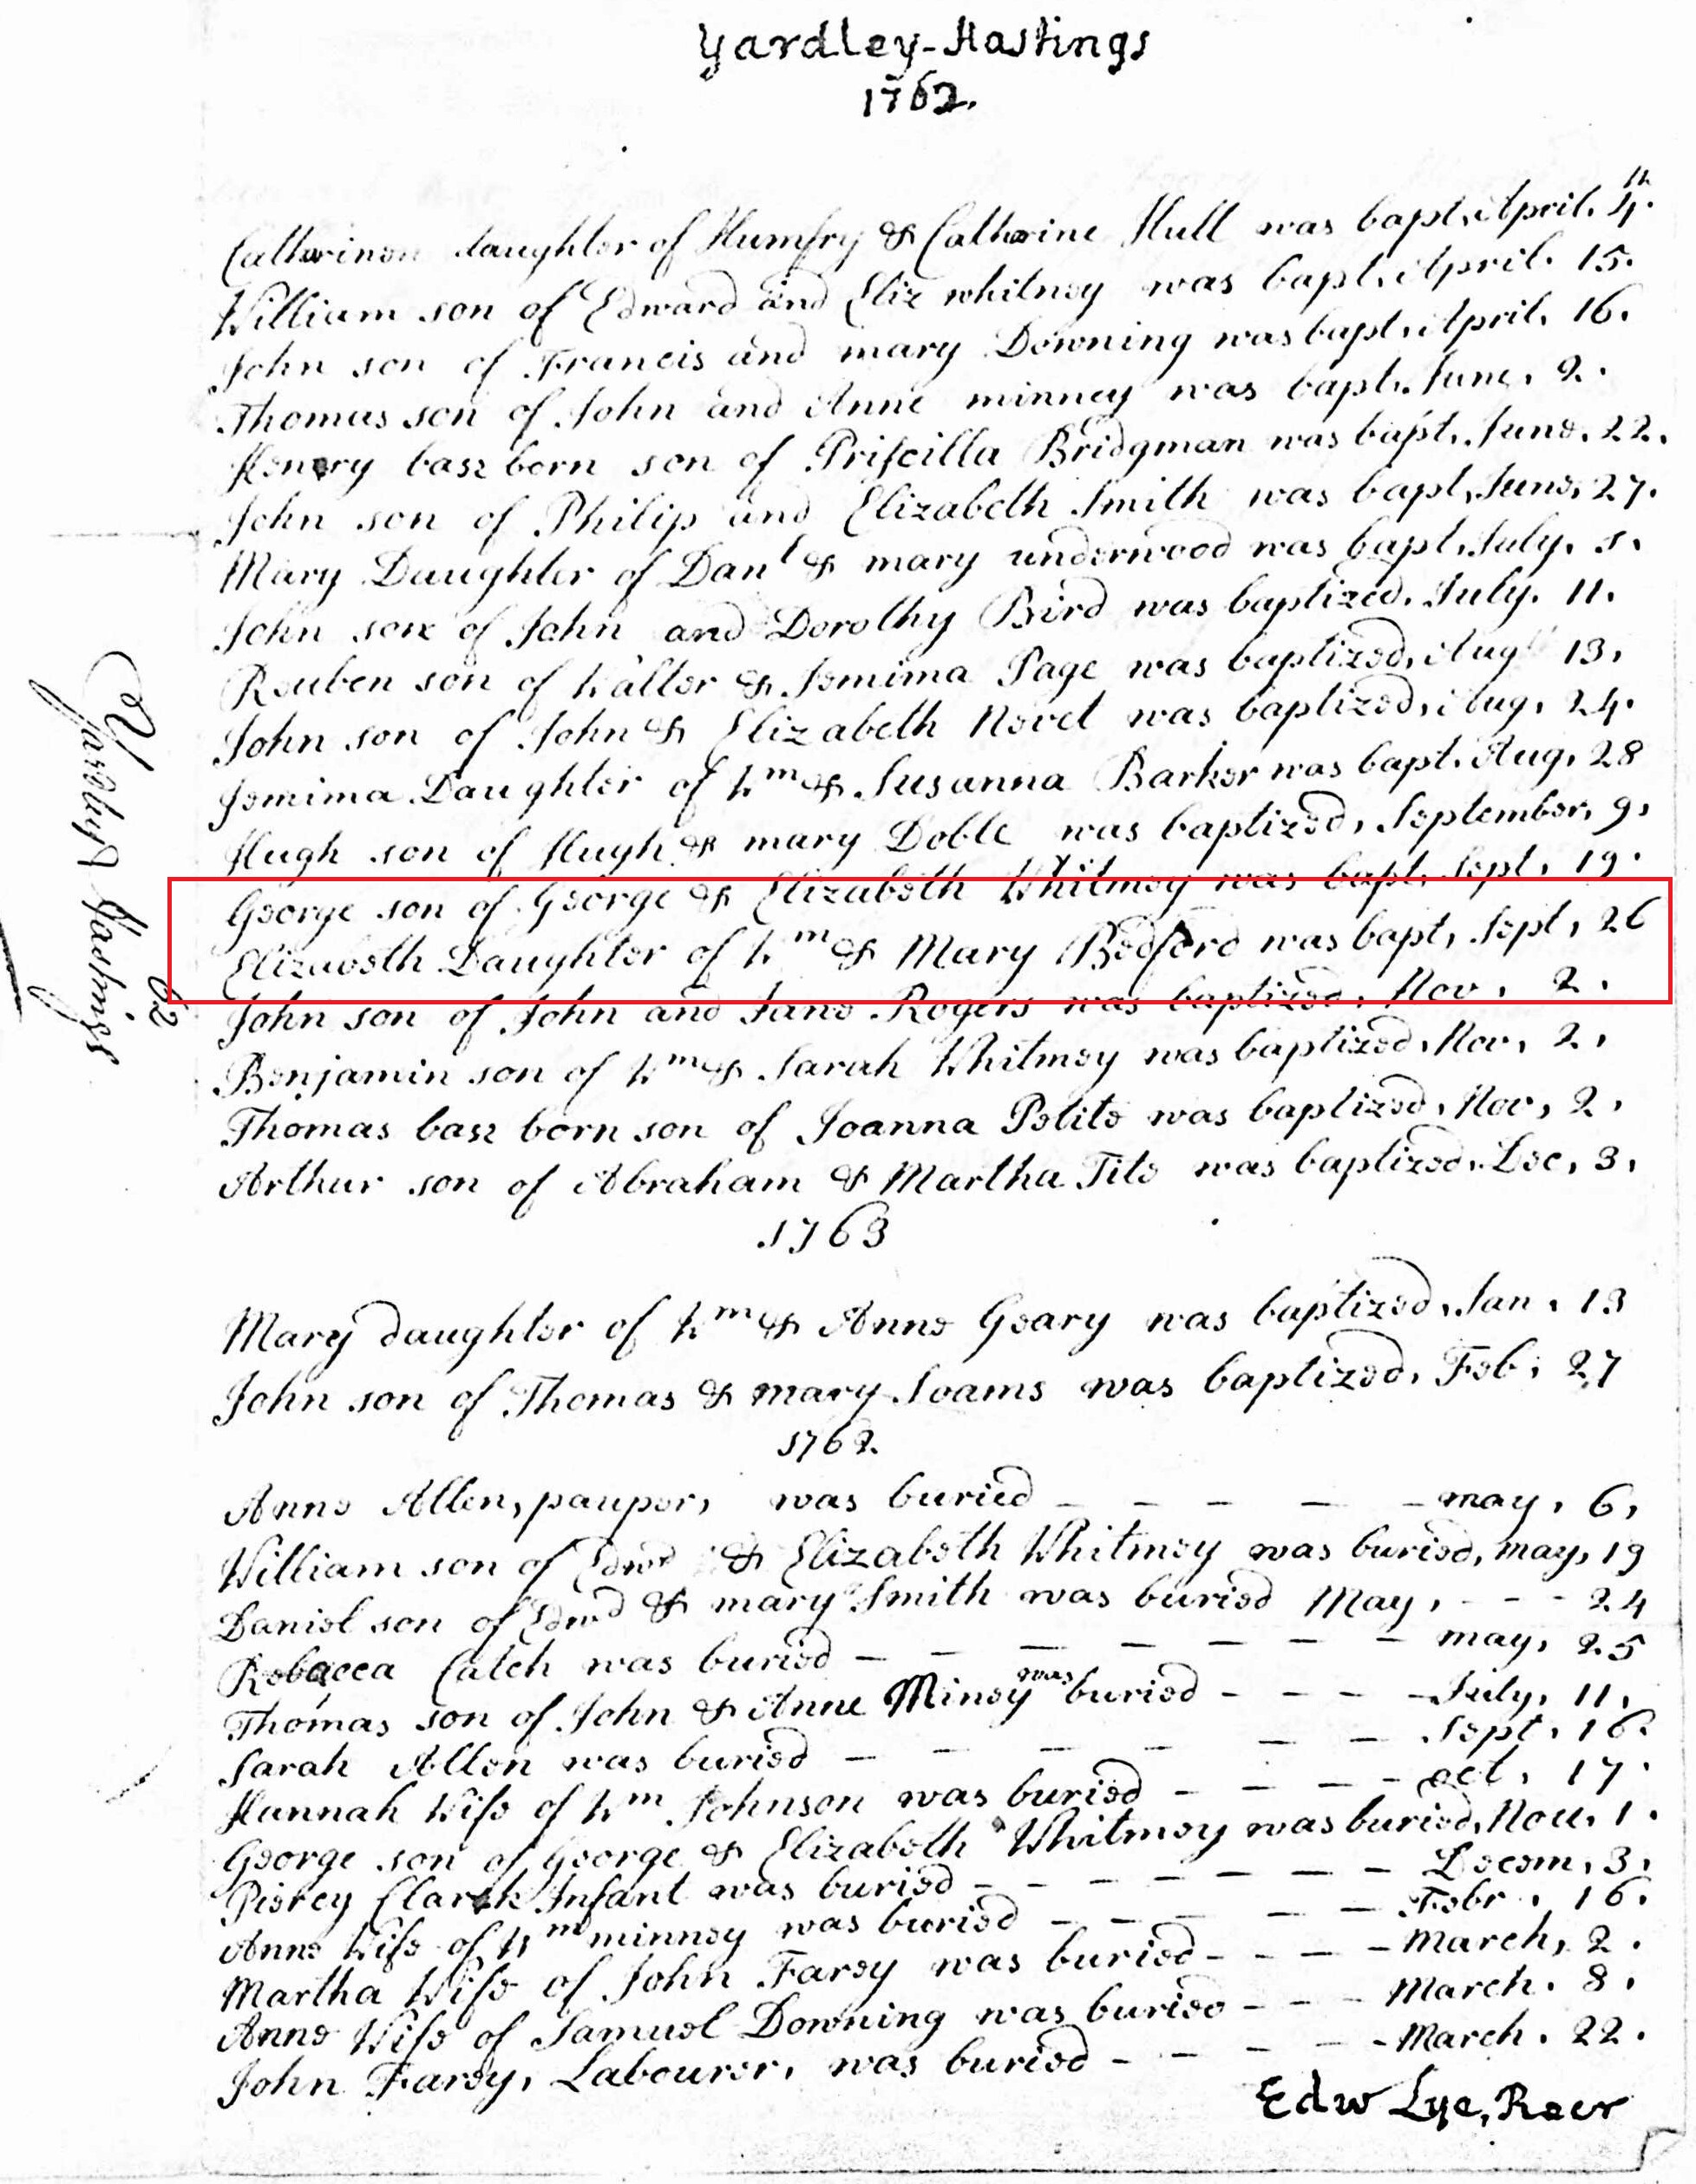 Yardley-Hastings
1762.
Catherine daughter of Humfry & Catherine Hull was bapt. April. 4th.
William son of Edward and Eliz whitney was bapt. April. 15.
John son of Francis and mary Downing was bapt. April. 16.
Thomas son of John and Anne minney was bapt. June. 2.
Henry base born son of Priscilla Bridgman was bapt. June. 22.
John son of Philip and Elizabeth Smith was bapt. June. 27.
Mary Daughter of Danl & mary underwood was bapt. July. 1.
John son of John and Dorothy Bird was baptized. July. 11.
Reuben son of Walter & Jemima Page was baptized, Aug 13,
John son of John & Elizabeth Novel was baptized, Aug, 24.
Jemima Daughter of Wm & Susanna Barker was bapt. Aug, 28
Hugh son of Hugh & mary Doble was baptized, September, 9,
George son of George & Elizabeth Whitmey was bapt, Sept, 19.
Elizabeth Daughter of Wm & Mary Bedford was bapt, Sept, 26
John son of John and Jane Rogers was baptized, Nov, 2.
Benjamin son of Wm & Sarah Whitmey was baptized, Nov, 2,
Thomas base born son of Joanna Petite was baptized, Nov, 2,
Arthur son of Abraham & Martha Tite was baptized. Dec, 3,
1763
Mary daughter of Wm & Anne Geary was baptized, Jan. 13
John son of Thomas & mary Soams was baptized, Feb, 27
1762.
Anne Allen, pauper, was buried - - - - - may, 6,
William son of Edwd & Elizabeth Whitmey was buried, may, 19
Daniel son of Edwd & mary Smith was buried May, - - - 24
Rebacca Catch was buried - - - - - - - may, 25
Thomas son of John & Anne Miney was buried - - - - July, 11,
Sarah Allen was buried - - - - - - Sept. 16.
Hannah Wife of Wm Johnson was buried - - - - oct, 17.
George son of George & Elizabeth Whitmey was buried, Nov, 1.
Piercy Clark Infant was buried - - - - - - - Decem, 3,
Anne Wife of Wm minney was buried - - - - - Febr. 16.
Martha Wife of John Farey was buried - - - - March, 2.
Anne Wife of Samuel Downing was buried - - - March. 8.
John Farey, Labourer, was buried - - - - - March. 22.
Edw Lye, Recr
Yardley Hastings
62